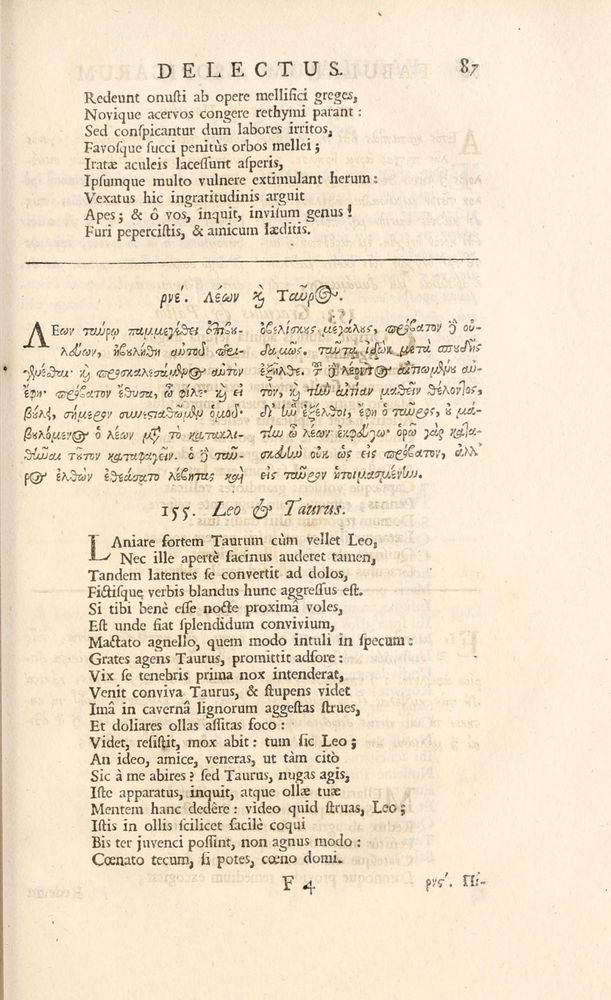 DELECTUS. 87
Redeunt onusti ab opere mellifici greges,
Novique acervos congere rethymi parant:
Sed conspicantur dum labores irritos,
Favosque succi penitùs orbos mellei;
Iratæ aculeis lacessunt asperis,
Ipsumque multo vulnere extimulant herum:
Vexatus hic ingratitudinis arguit
Apes; & ô vos, inquit, invisum genus!
Furi pepercistis, & amicum læditis.
ρνέ. Λέων ϗ Ταῦρος.
ΛΕων ταύρῳ παμμεγέθει ἐπιβου-
λεύων, ἠβουλήθη αὐτοῦ περι-
γενέσθαι. ϗ προσκαλεσάμενος αὐτὸν
ἔφη· πρόβατον ἔθυσα, ὦ φίλε· ϗ εἰ
βούλει, σήμερον συνεσταθῶμεν ὁμοῦ·
βουλόμενος ὁ λέων μετὰ τὸ κατακλι-
θῆναι τοῦτον καταφαγεῖν. ὁ δὲ ταῦ-
ρος ἐλθὼν ἐθεάσατο λέβητας καὶ
ὀβελίσκους μεγάλους, πρόβατον δὲ οὐ-
δαμῶς. ταῦτα ἰδὼν μετὰ σπουδῆς
ἐξῆλθε. τοῦ δὲ λέοντος αἰτιωμένου αὐ-
τὸν, ϗ τὴν αἰτίαν μαθεῖν θέλοντος,
δι' ἣν ἐξέλθοι, ἔφη ὁ ταῦρος, οὐ μά-
την ὦ λέων ἐκφεύγω· ὁρῶ γὰρ κατα-
σκευὴν οὐκ ὡς εἰς πρόβατον, ἀλλ'
εἰς ταῦρον ἡτοιμασμένην.
155. Leo & Taurus.
LAniare fortem Taurum cùm vellet Leo,
Nec ille apertè facinus auderet tamen,
Tandem latentes se convertit ad dolos,
Fictisque verbis blandus hunc aggressus est.
Si tibi benè esse nocte proximâ voles,
Est unde fiat splendidum convivium,
Mactato agnello, quem modo intuli in specum:
Grates agens Taurus, promittit adfore:
Vix se tenebris prima nox intenderat,
Venit conviva Taurus, & stupens videt
Imâ in cavernâ lignorum aggestas strues,
Et doliares ollas assitas foco:
Videt, resistit, mox abit: tum sic Leo;
An ideo, amice, veneras, ut tàm citò
Sic à me abires? sed Taurus, nugas agis,
Iste apparatus, inquit, atque ollæ tuæ
Mentem hanc dedêre: video quid struas, Leo;
Istis in ollis scilicet facilè coqui
Bis ter juvenci possint, non agnus modo:
Cœnato tecum, si potes, cœno domi.
F 4 ρνς΄. Πί-